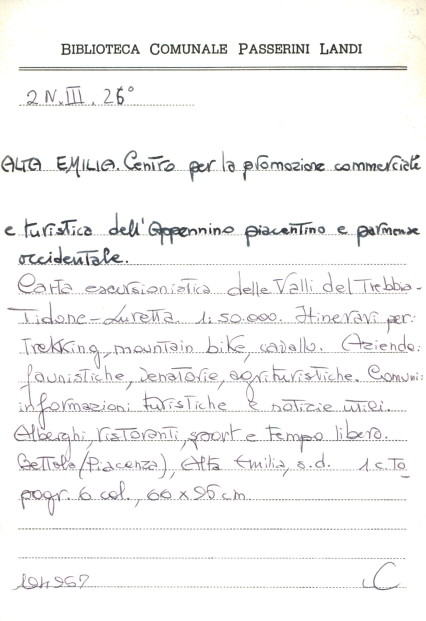 BIBLIOTECA COMUNALE PASSERINI LANDI
2 N. III. 26°
ALTA EMILIA. Centro per la promozione commerciale
e turistica dell'Appennino piacentino e parmense
occidentale.
Carta escursionistica delle Valli del Trebbia-
Tidone-Luretta. 1:50.000. Itinerari per:
Trekking, mountain bike, cavallo. Aziende:
faunistiche, venatorie, agrituristiche. Comuni:
informazioni turistiche e notizie utili.
Alberghi, ristoranti, sport e tempo libero.
Bettola (Piacenza), Alta Emilia, s.d. 1 c. to
pogr. 6 col., 66 x 95 cm
C